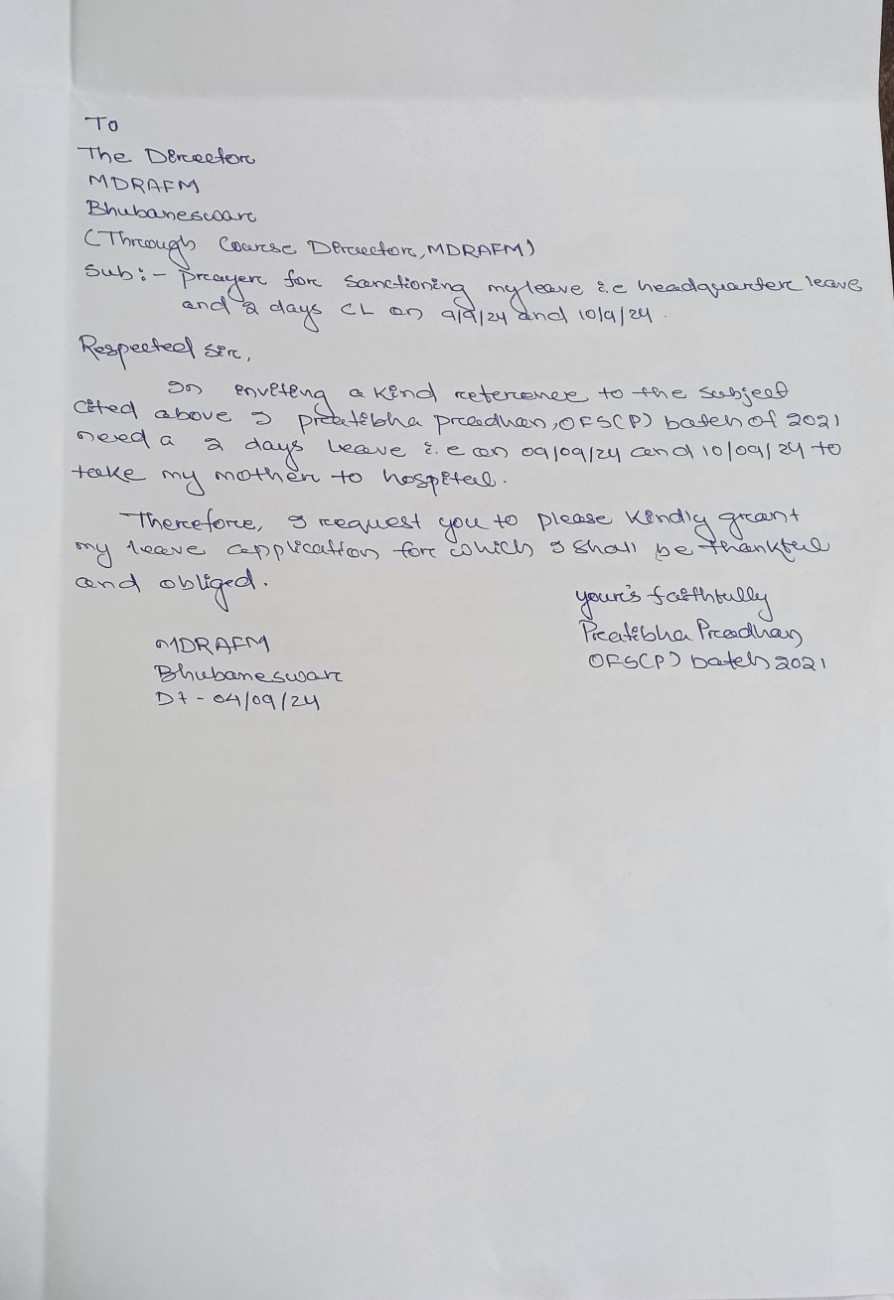 To
The Director
MDRAFM
Bhubaneswar
(Through Course Director, MDRAFM)
Sub:- prayer for sanctioning my leave i.e headquarter leave
and 2 days CL on 9/9/24 and 10/9/24.
Respected sir,
In inviting a kind reference to the subject
cited above I pratibha pradhan, OFS(P) batch of 2021
need a 2 days leave i.e on 09/09/24 and 10/09/24 to
take my mother to hospital.
Therefore, I request you to please kindly grant
my leave application for which I shall be thankful
and obliged.
your's faithfully
Pratibha Pradhan
OFS(P) batch 2021
MDRAFM
Bhubaneswar
Dt - 04/09/24